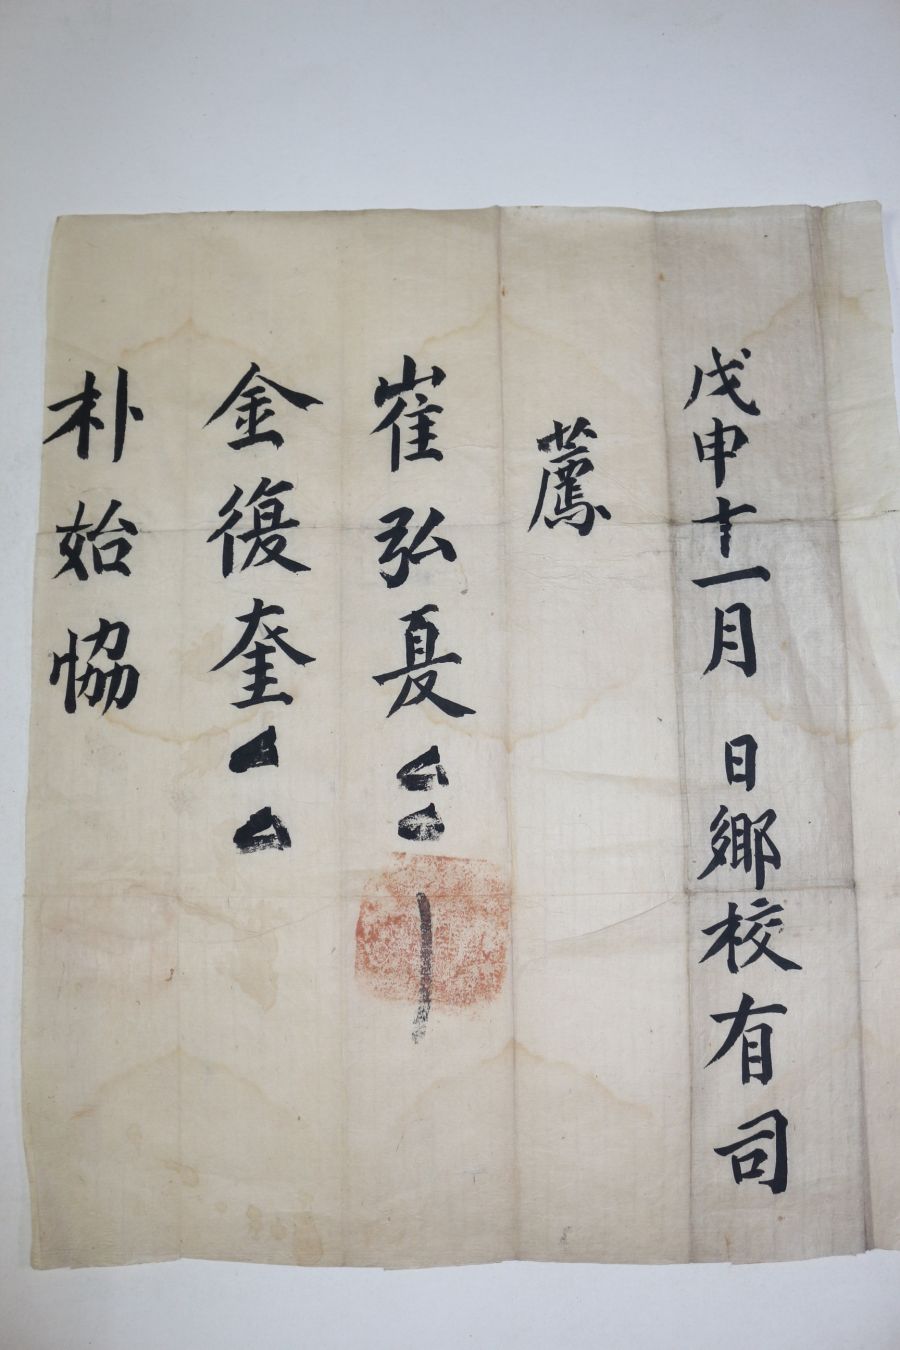 戊申十一月 日鄕校有司
薦
崔弘夏
金復奎
朴始恊